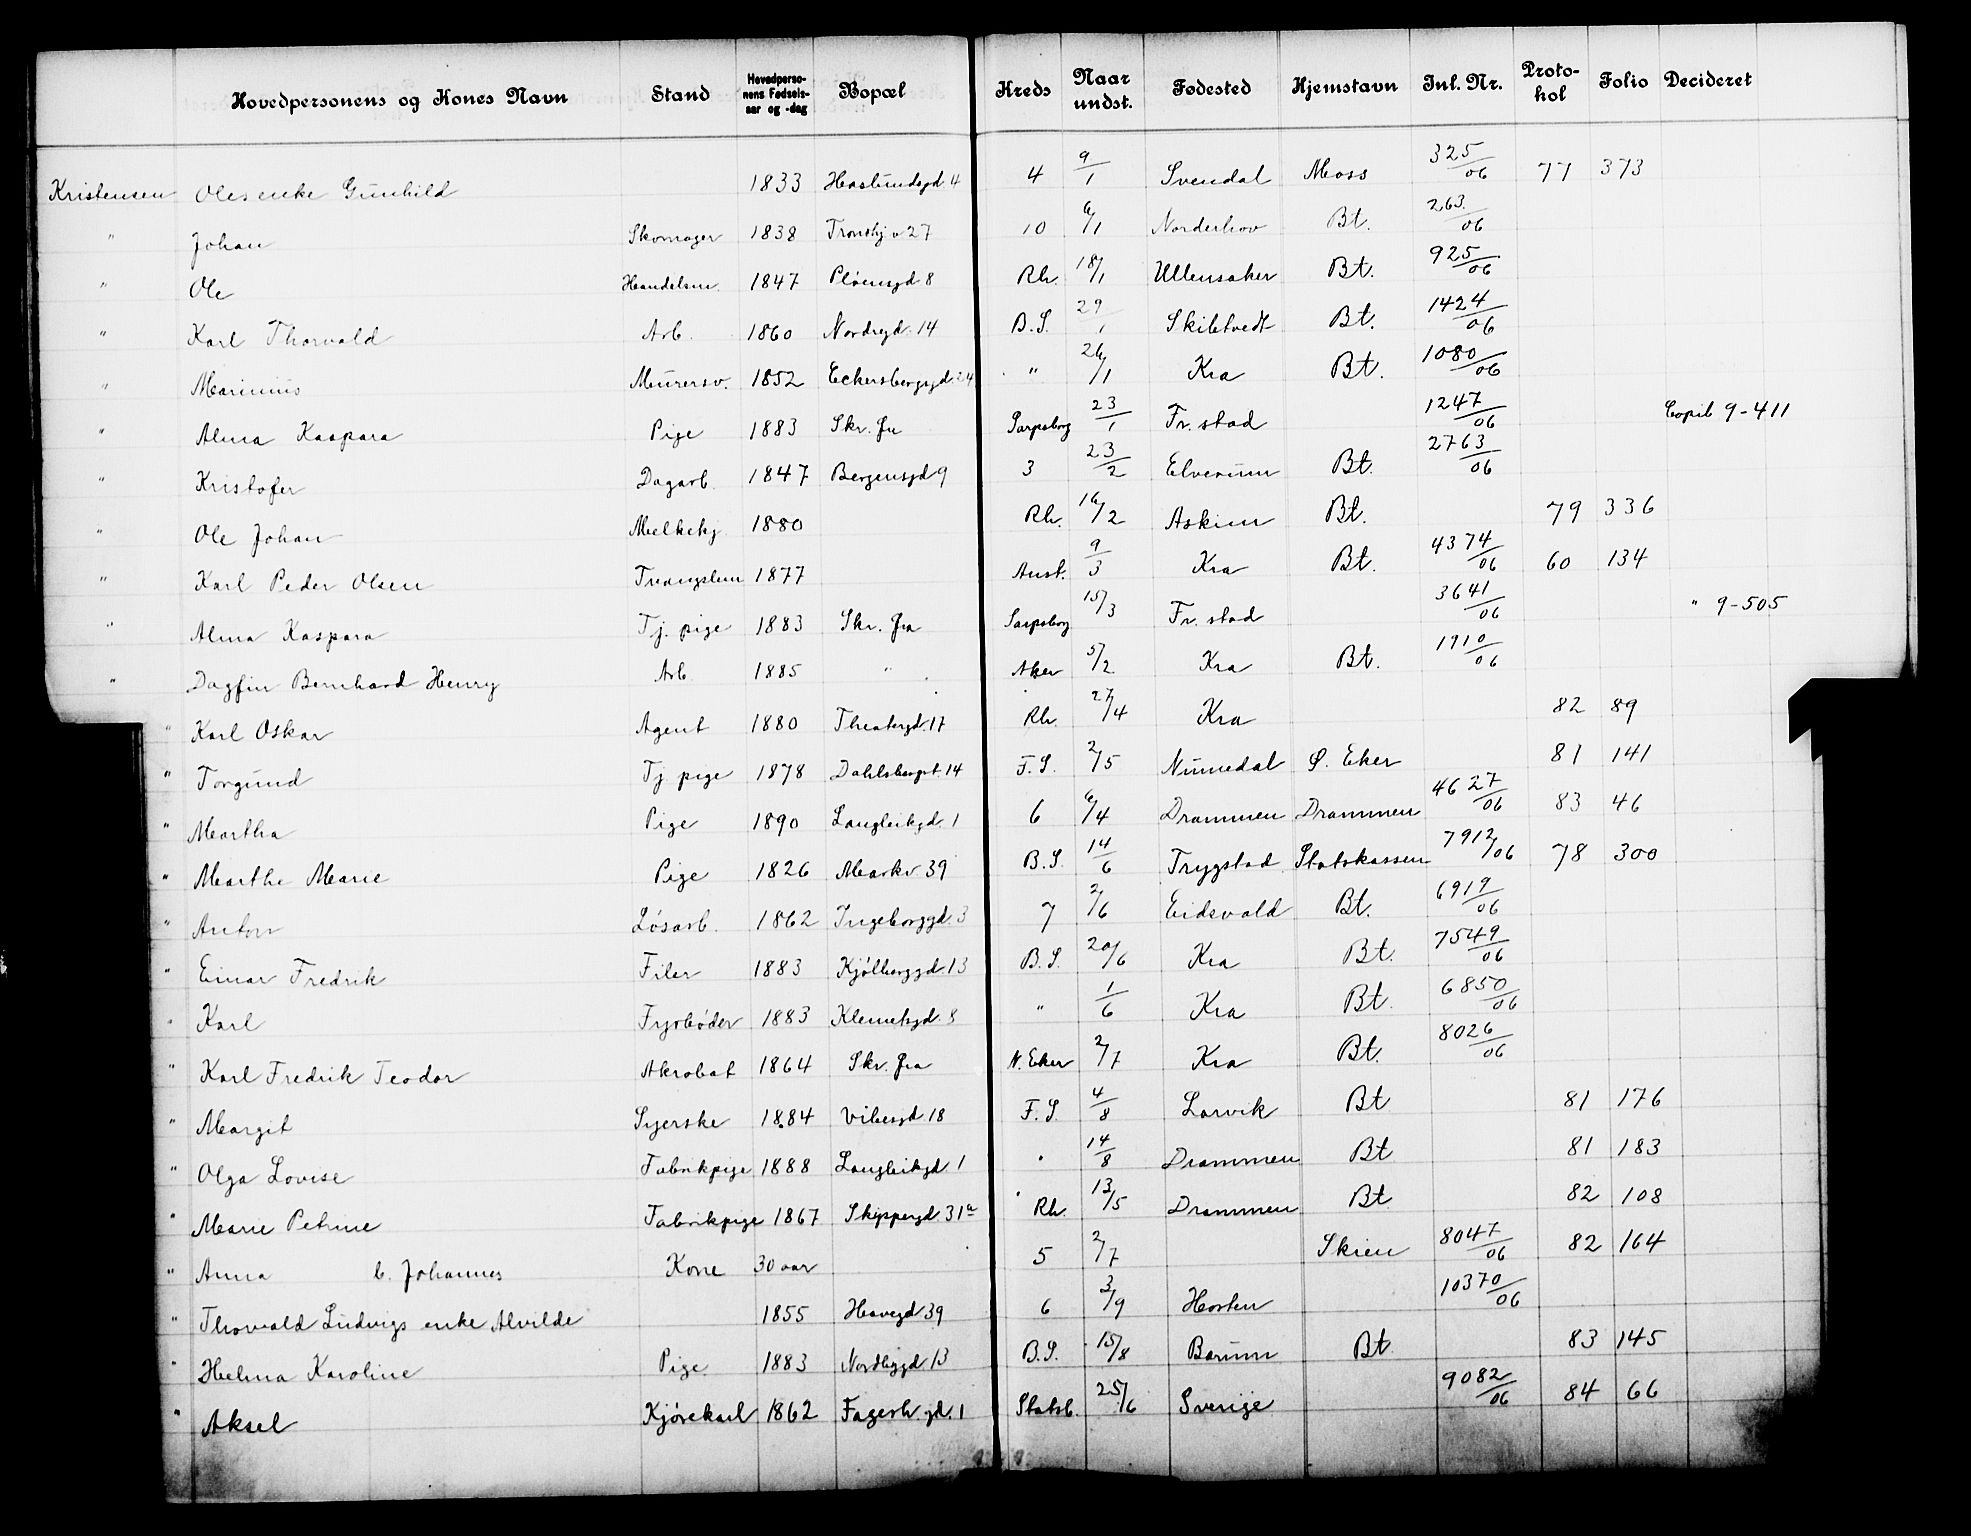 Hovedpersonens og Kones Navn | Stand | Hovedpersonens Fødselsaar og -dag | Bopæl | Kreds | Naar undst. | Fødested | Hjemstavn | Inl. Nr. | Protokol | Folio | Decideret
Kristensen | Oles enke Gunhild | | 1833 | 4 | 9/1 | Svendal | Moss | 325/06 | 77 | 373
" | Johan | Skomager | 1838 | 10 | 6/1 | Norderhov | Bt. | 263/06
" | Ole | Handelsm. | 1847 | Pløensgd 8 | Rh. | 18/1 | Ullensaker | Bt. | 925/06
" | Karl Thorvald | Arb. | 1860 | Nordregd. 14 | B.S. | 29/1 | Skibtvedt | Bt. | 1424/06
" | Marinius | Murersv. | 1852 | Eckersbergsgd. 24 | " | 26/1 | Kra | Bt. | 1080/06
" | Alma Kaspara | Pige | 1883 | Skr. fra | Sarpsborg | 23/1 | Fr.stad | | 1247/06 | | | Copib 9-411
" | Kristofer | Dagarb. | 1847 | Bergensgd 9 | 3 | 23/2 | Elverum | Bt. | 2763/06
" | Ole Johan | Melkekj. | 1880 | | Rh. | 16/2 | Askim | Bt. | | 79 | 336
" | Karl Peder Olsen | Tvangslem | 1877 | | Anst. | 9/3 | Kra | Bt. | 4374/06 | 60 | 134
" | Alma Kaspara | Tj. pige | 1883 | Skr. fra | Sarpsborg | 15/3 | Fr.stad | | 3641/06 | | | " 9-505
" | Dagfin Bernhard Henry | Arb. | 1885 | " | Aker | 5/2 | Kra | Bt. | 1910/06
" | Karl Oskar | Agent | 1880 | Theatergd. 17 | Rh. | 27/4 | Kra | | | 82 | 89
" | Torgund | Tj. pige | 1878 | Dahlsbergst. 14 | F.S. | 2/5 | Numedal | Ø. Eker | | 81 | 141
" | Martha | Pige | 1890 | Langleikgd. 1 | 6 | 6/4 | Drammen | Drammen | 4627/06 | 83 | 46
" | Marthe Marie | Pige | 1826 | Markv 39 | B.S. | 14/6 | Trygstad | Statskassen | 7912/06 | 78 | 300
" | Anton | Løsarb. | 1862 | Ingeborggd. 3 | 7 | 2/6 | Eidsvold | Bt. | 6919/06
" | Einar Fredrik | Filer | 1883 | Kjølberggd. 13 | B.S. | 20/6 | Kra | Bt. | 7549/06
" | Karl | Fyrbøder | 1883 | Klemetsgd. 8 | " | 1/6 | Kra | Bt. | 6850/06
" | Karl Fredrik Teodor | Akrobat | 1864 | Skr. fra | N. Eker | 2/7 | Kra | Bt. | 8026/06
" | Margit | Syerske | 1884 | Vibesgd 18 | F.S. | 4/8 | Larvik | Bt | | 81 | 176
" | Olga Lovise | Fabrikpige | 1888 | Langleikgd 1 | " | 14/8 | Drammen | Bt | | 81 | 183
" | Marie Petrine | Fabrikpige | 1867 | Skippergd 31a | Rh. | 13/5 | Drammen | Bt | | 82 | 108
" | Anna c. Johannes | Kone | 30 aar | | 5 | 2/7 | | Skien | 8047/06 | 82 | 164
" | Thorvald Ludvigs enke Alvilde | | 1855 | Havegd 39 | 6 | 3/9 | Horten | | 10370/06
" | Helma Karoline | Pige | 1883 | Nordbygd 13 | B.S. | 15/8 | Barum | Bt | | 83 | 145
" | Aksel | Kjørekarl | 1862 | Fagerh. gd. 1 | Statsb. | 25/6 | Sverige | | 9082/06 | 84 | 66